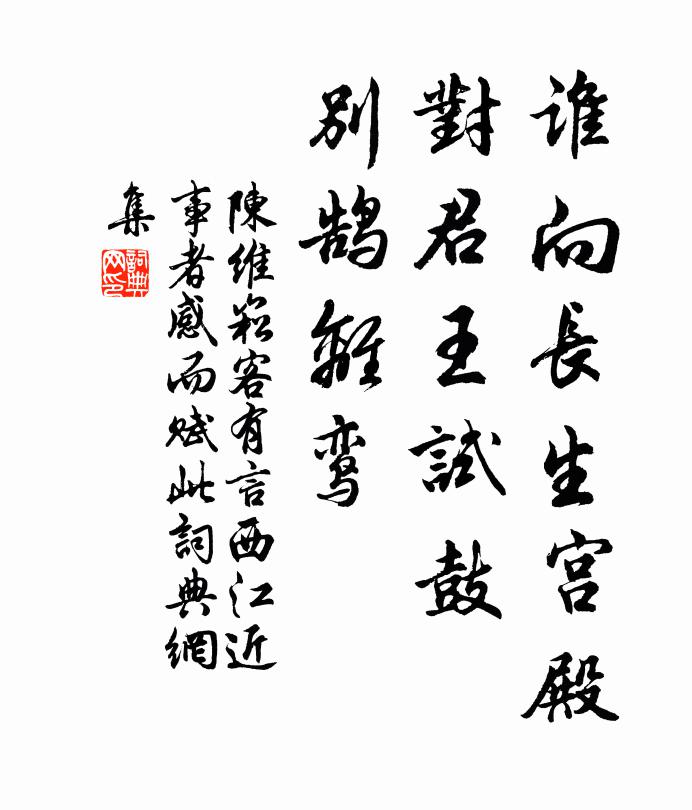 谁向長生宫殿
對君王試鼓
别鹄離鸾
陳維崧客有言西江近
事者感而赋此詞典網
集
詞典網印